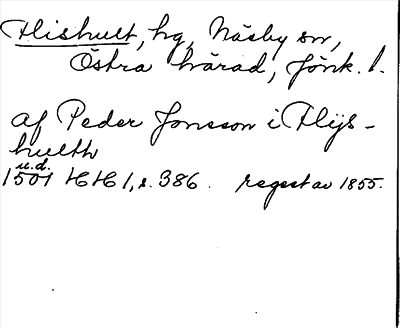 Flishult, hg, Näsby sn,
Östra härad, Jönk. l.
af Peder Jonsson i Flijs-
hulth
u.d.
1501 HH 1, s. 386. regest av 1855.